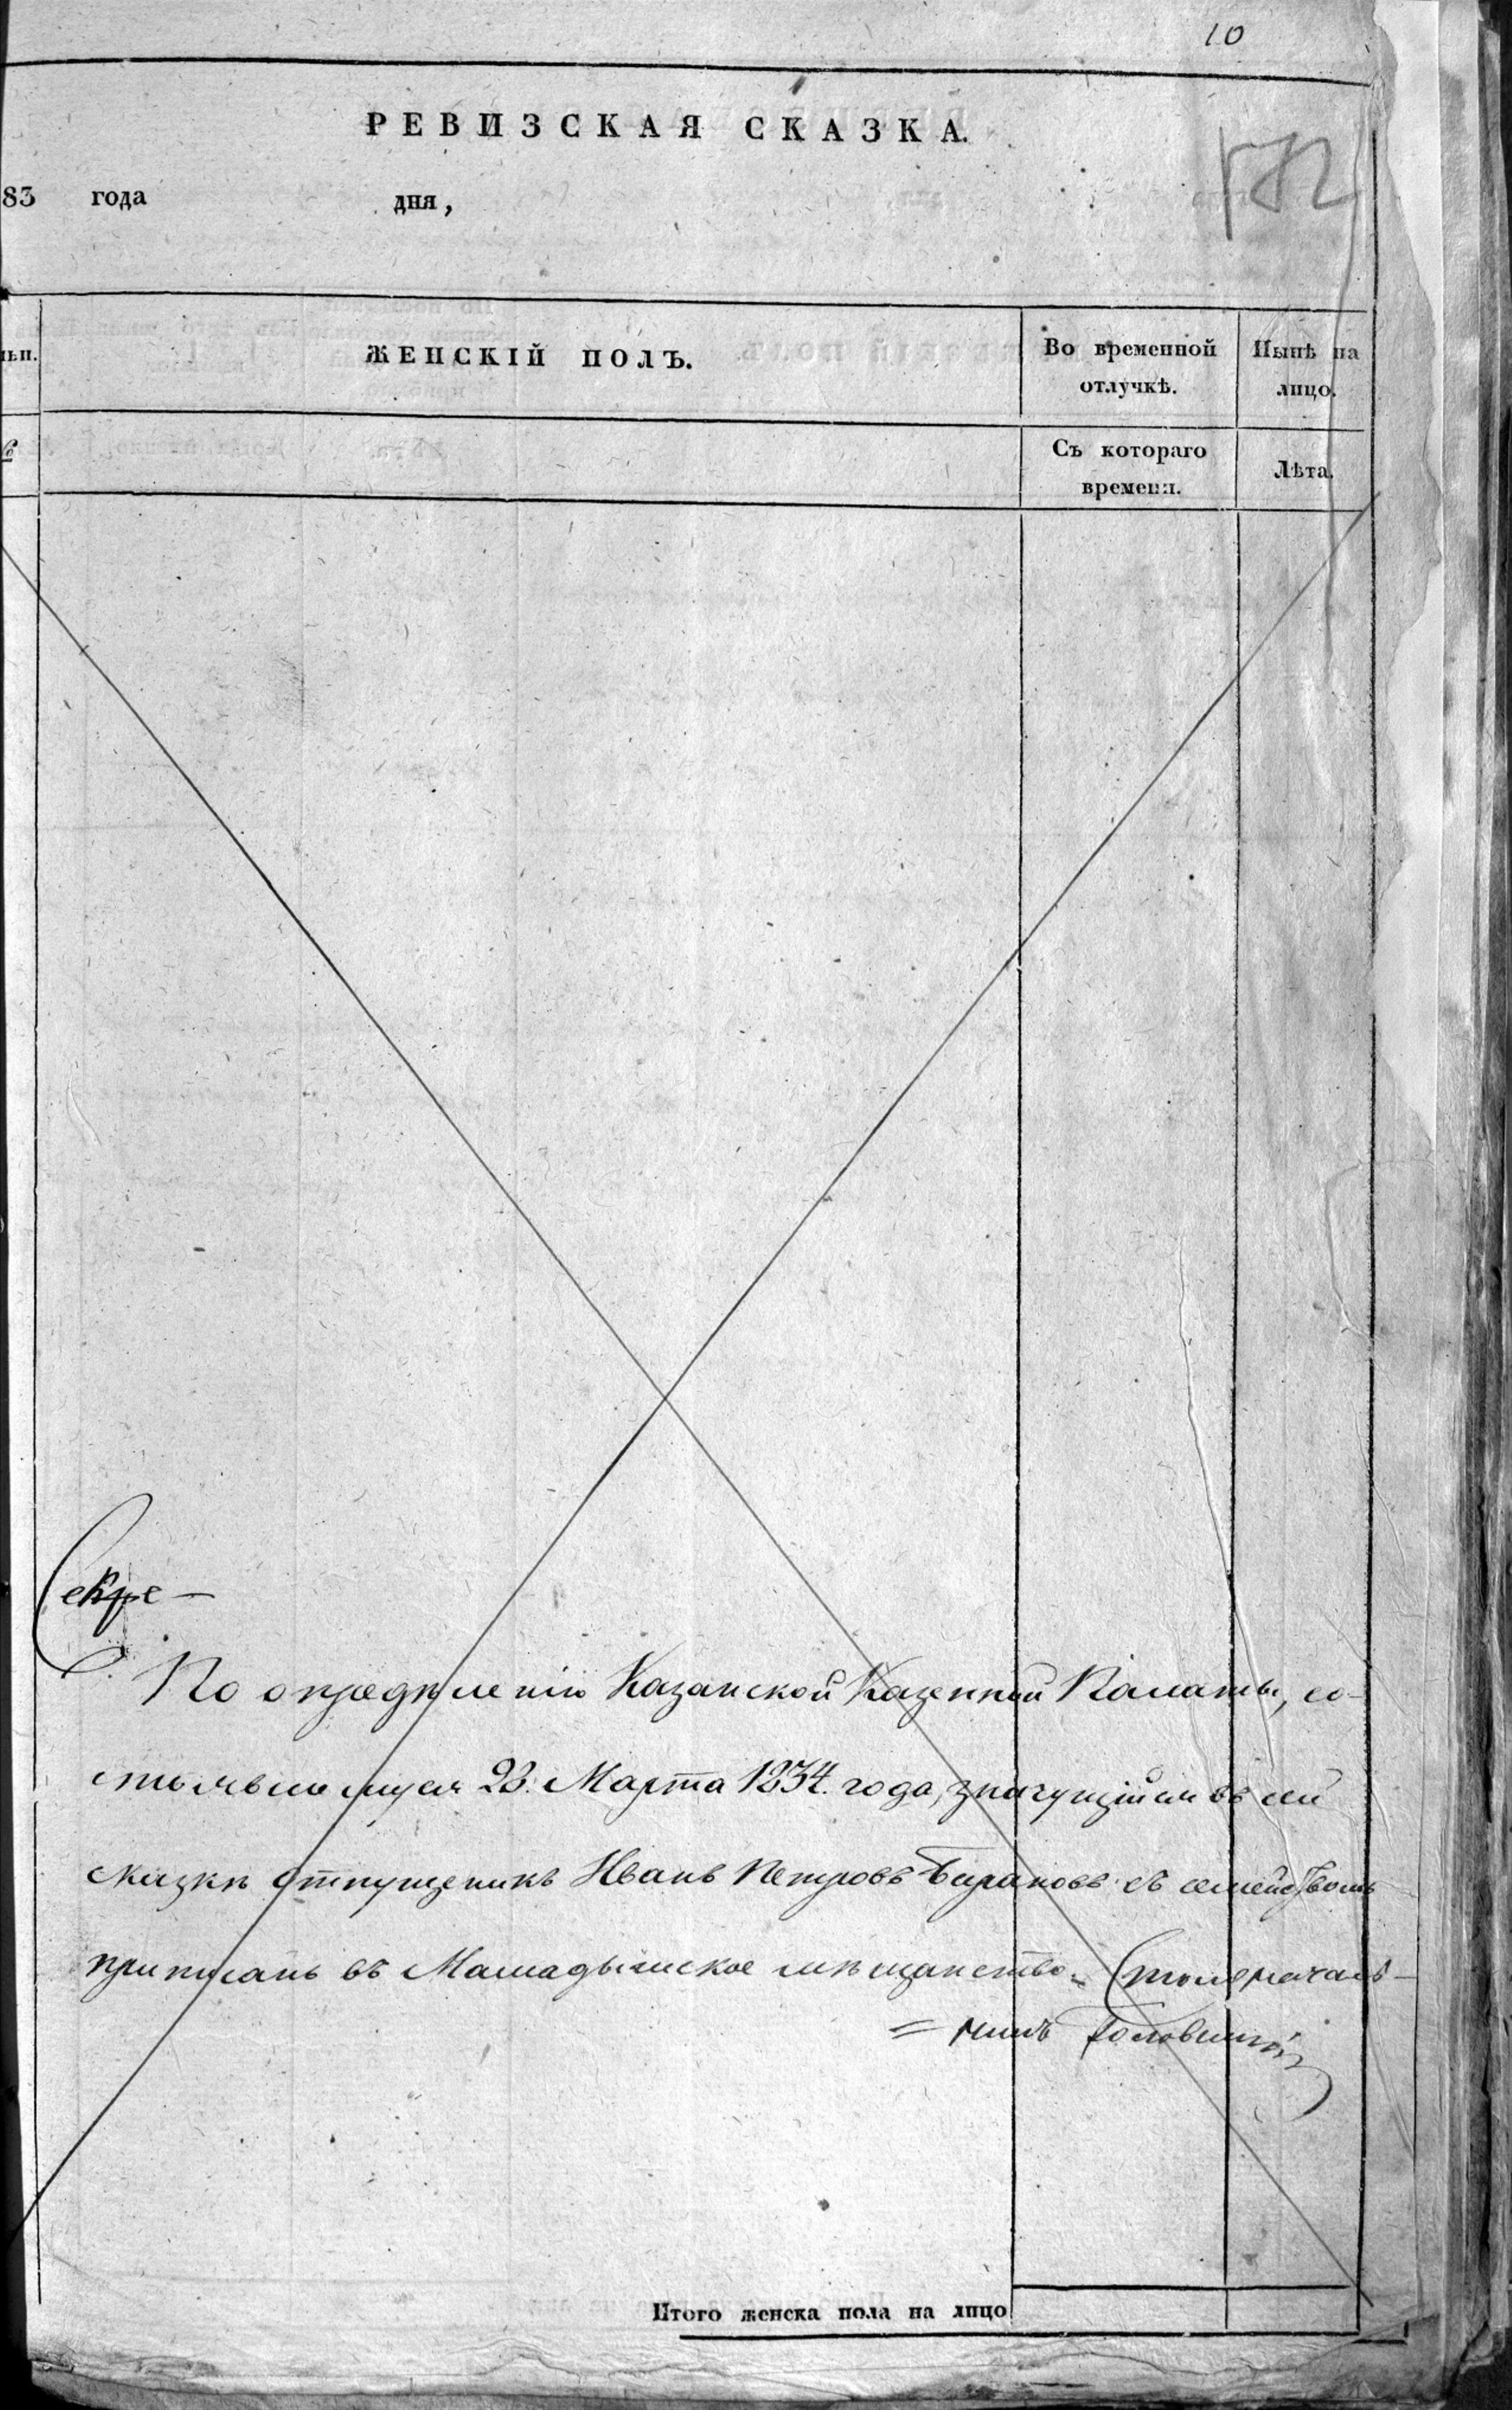 10
РЕВИЗСКАЯ СКАЗКА.
183 года дня,
ЖЕНСКІЙ ПОЛЪ.
Во временной отлучкѣ.
Нынѣ на лицо.
№
Съ котораго времени.
Лѣта.
Секре-
По опредѣленію Казанской Казенной Палаты, со-
стоявшемуся 23. Марта 1834. года, значущійся въ сей
сказкѣ отпущеникъ Иванъ Петровъ Барановъ съ семействомъ
приписанъ въ Мамадышское мѣщанство. Столоначаль-
=никъ
Итого женска пола на лицо